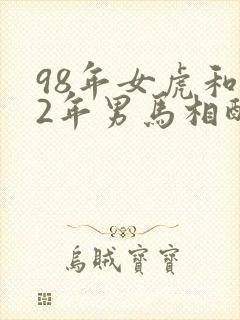 98年女虎和
2年男馬相配
烏賊寶寶